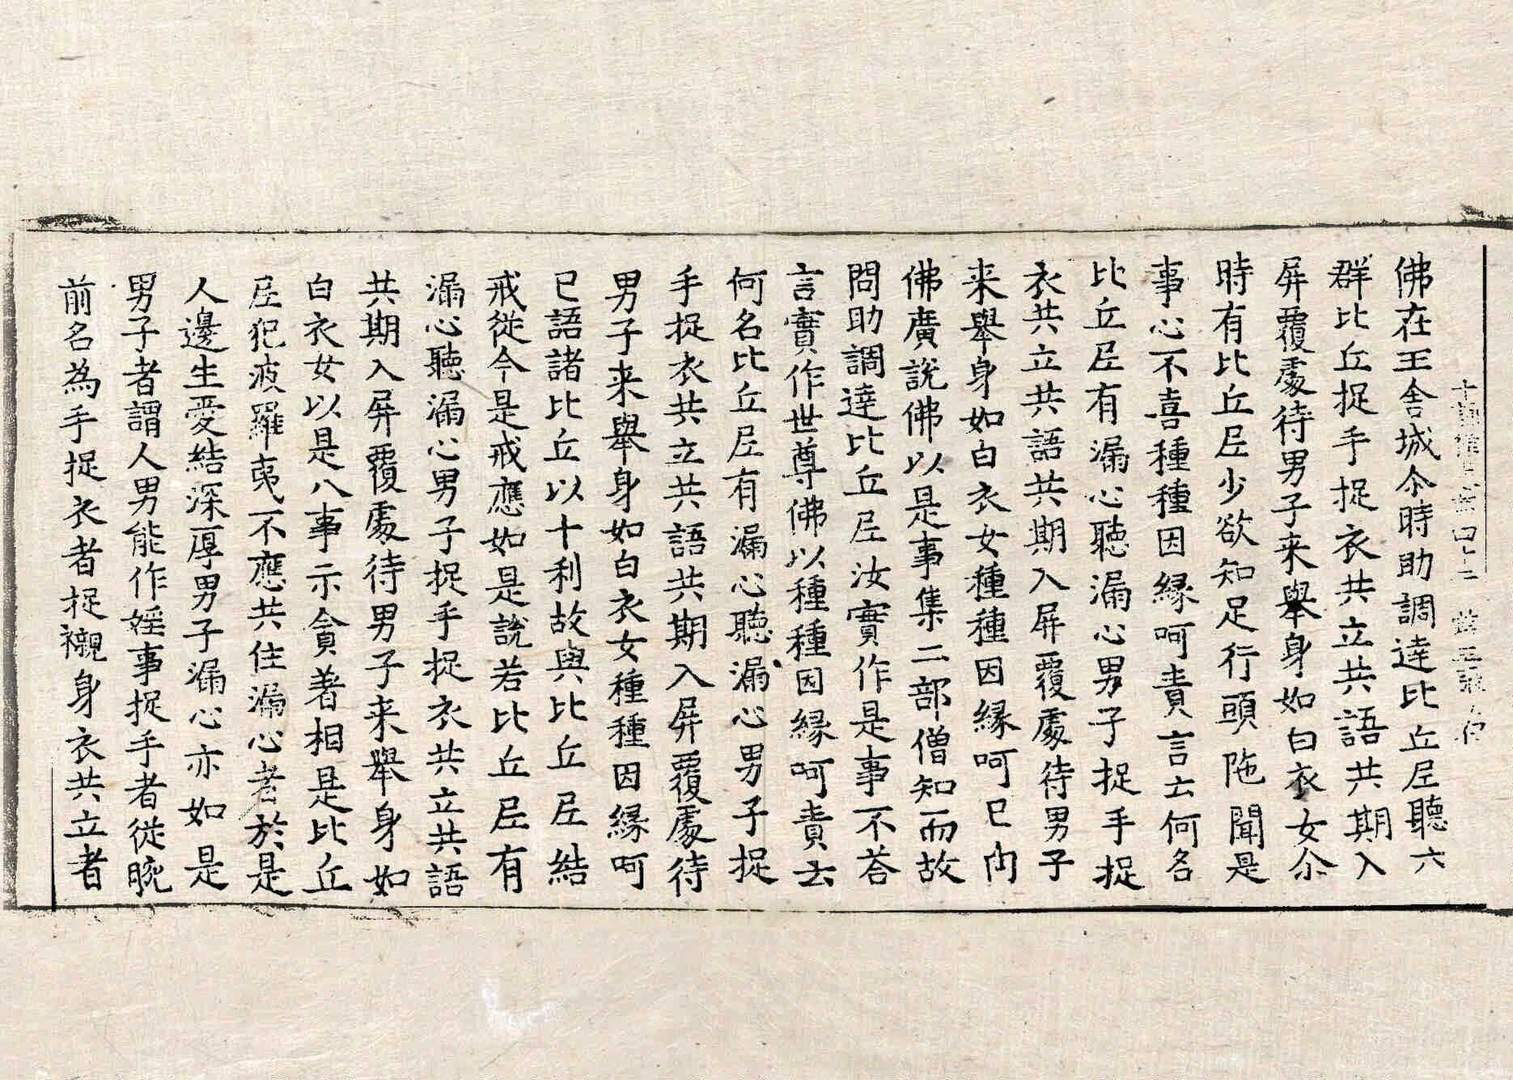 佛在王舍城尒時助調達比丘𡰱聽六
群比丘捉手捉衣共立共語共期入
屏覆處待男子来舉身如白衣女尒
時有比丘𡰱少欲知足行頭陁聞是
事心不喜種種因縁呵責言云何名
比丘𡰱有漏心聽漏心男子捉手捉
衣共立共語共期入屏覆處待男子
来舉身如白衣女種種因縁呵已向
佛廣說佛以是事集二部僧知而故
問助調達比丘𡰱汝實作是事不荅
言實作世尊佛以種種因縁呵責云
何名比丘𡰱有漏心聽漏心男子捉
手捉衣共立共語共期入屏覆處待
男子来舉身如白衣女種種因縁呵
已語諸比丘以十利故與比丘𡰱結
戒從今是戒應如是說若比丘𡰱有
漏心聽漏心男子捉手捉衣共立共語
共期入屏覆處待男子来舉身如
白衣女以是八事示貪著相是比丘
𡰱犯波羅夷不應共住漏心者於是
人邊生愛結深厚男子漏心亦如是
男子者謂人男能作婬事捉手者從腕
前名為手捉衣者捉襯身衣共立者